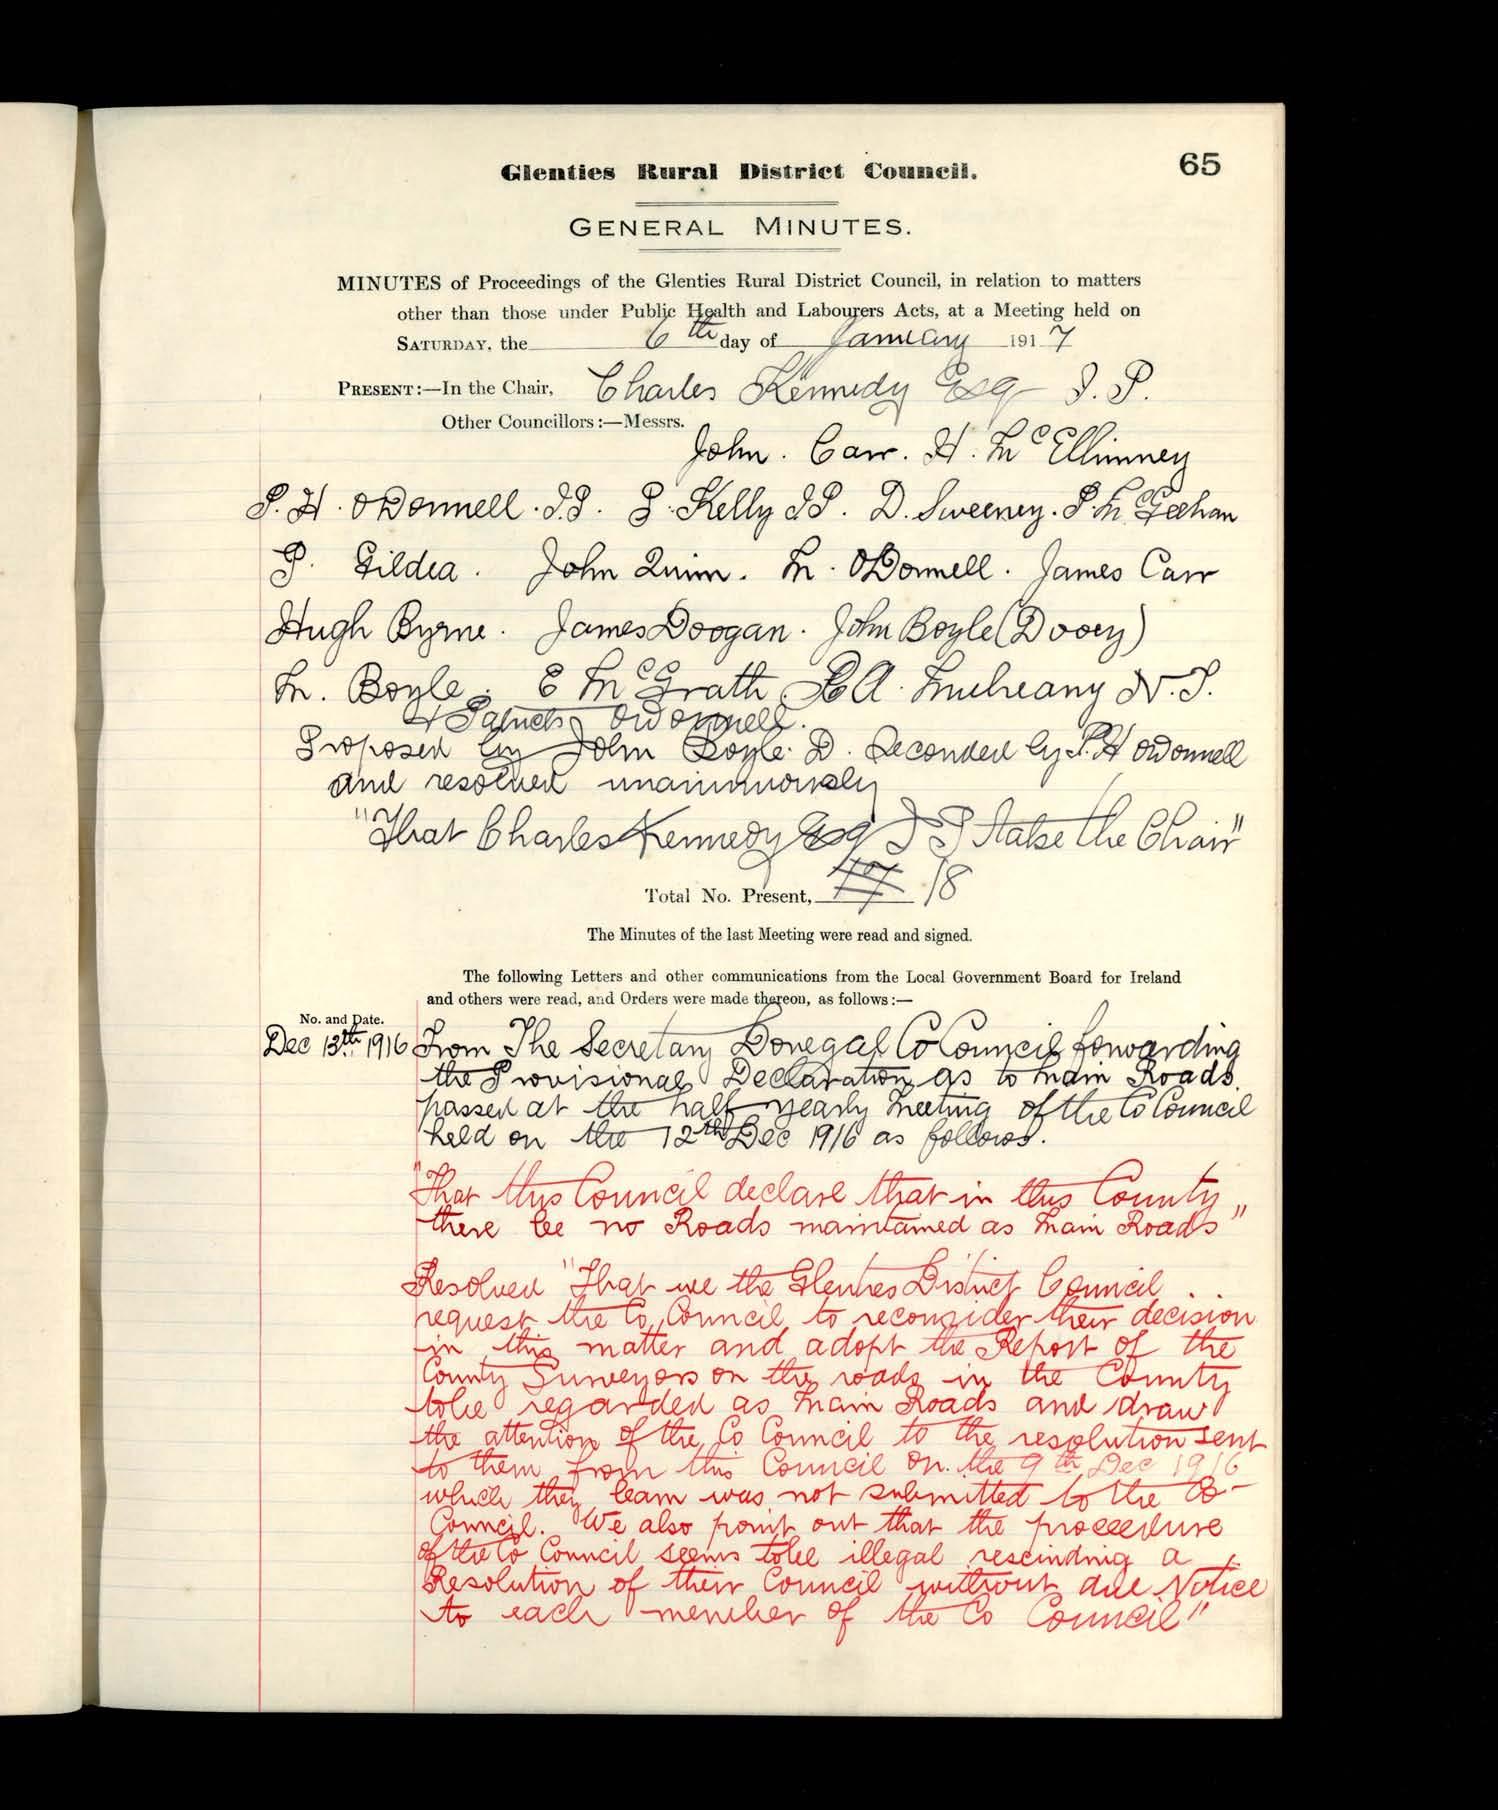 65
Glenties Rural District Council.
GENERAL MINUTES.
MINUTES of Proceedings of the Glenties Rural District Council, in relation to matters
other than those under Public Health and Labourers Acts, at a Meeting held on
SATURDAY, the 6th day of January 1917
PRESENT:—In the Chair, Charles Kennedy Esq J.P.
Other Councillors:—Messrs.
John. Carr. H. McElhinney
P. H. O'Donnell. J.P. P. Kelly J.P. D. Sweeney. P. McGeehan
P. Gildea. John Quinn. M. O'Donnell. James Carr
Hugh Byrne. James Doogan. John Boyle (Dooey)
M. Boyle. E McGrath. & A. Mulreany N.T.
+ Patrick O'Donnell.
Proposed by John Boyle. D. Seconded by P.H O'Donnell
and resolved unanimously
"That Charles Kennedy Esq J P take the Chair"
Total No. Present, 17 18
The Minutes of the last Meeting were read and signed.
The following Letters and other communications from the Local Government Board for Ireland
and others were read, and Orders were made thereon, as follows:—
No. and Date.
Dec 13th 1916 From The Secretary Donegal Co Council forwarding
the Provisional Declaration as to Main Roads
passed at the half yearly Meeting of the Co Council
held on the 12th Dec 1916 as follows.
"That this Council declare that in this County
there be no Roads maintained as Main Roads"
Resolved "That we the Glenties District Council
request the Co Council to reconsider their decision
in this matter and adopt the Report of the
County Surveyors on the roads in the County
to be regarded as Main Roads and draw
the attention of the Co Council to the resolution sent
to them from this Council on the 9th Dec 1916
which they learn was not submitted to the Co-
Council. We also point out that the proceedure
of the Co Council seems to be illegal rescinding a
Resolution of their Council without due Notice
to each member of the Co Council"